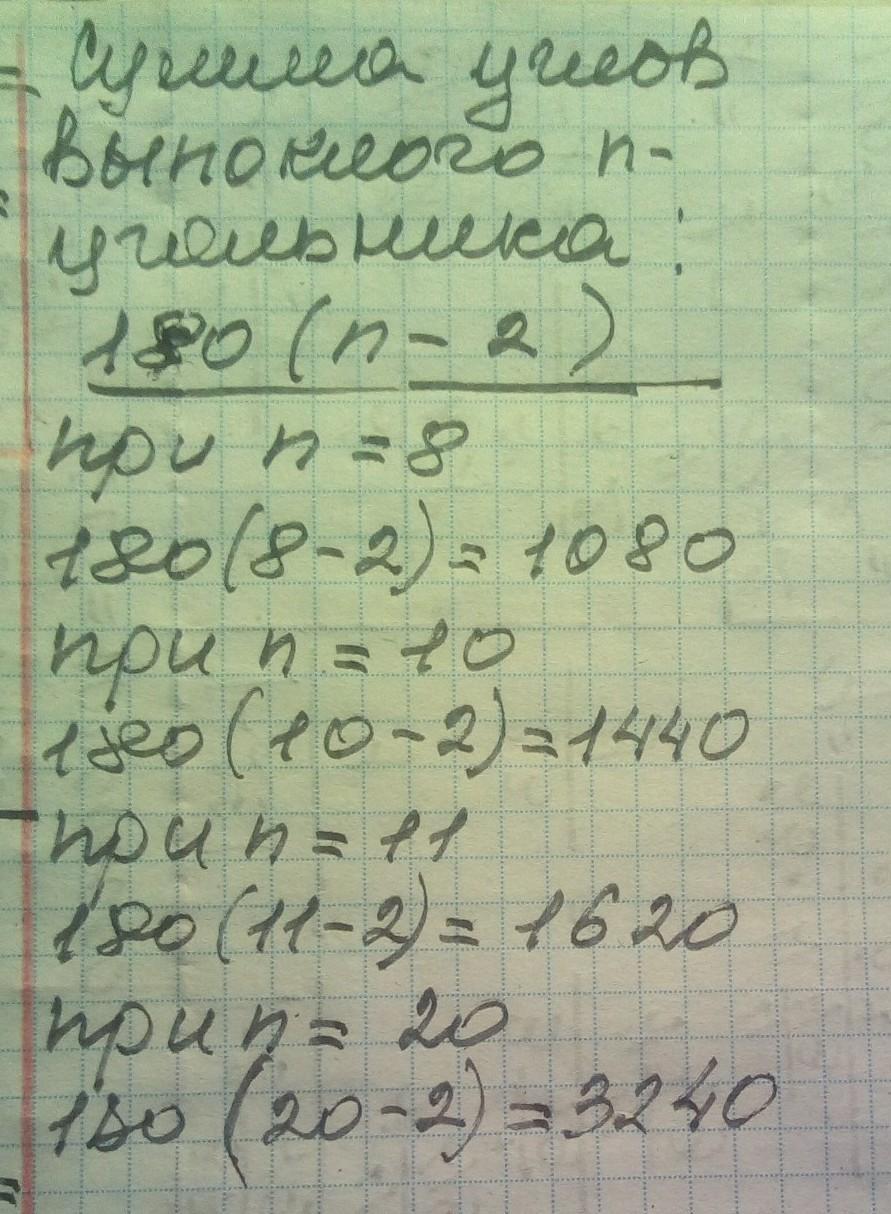 Сумма углов
выпоклого n-
угольника:
180(n-2)
при n=8
180(8-2)=1080
при n=10
180(10-2)=1440
при n=11
180(11-2)=1620
при n=20
180(20-2)=3240